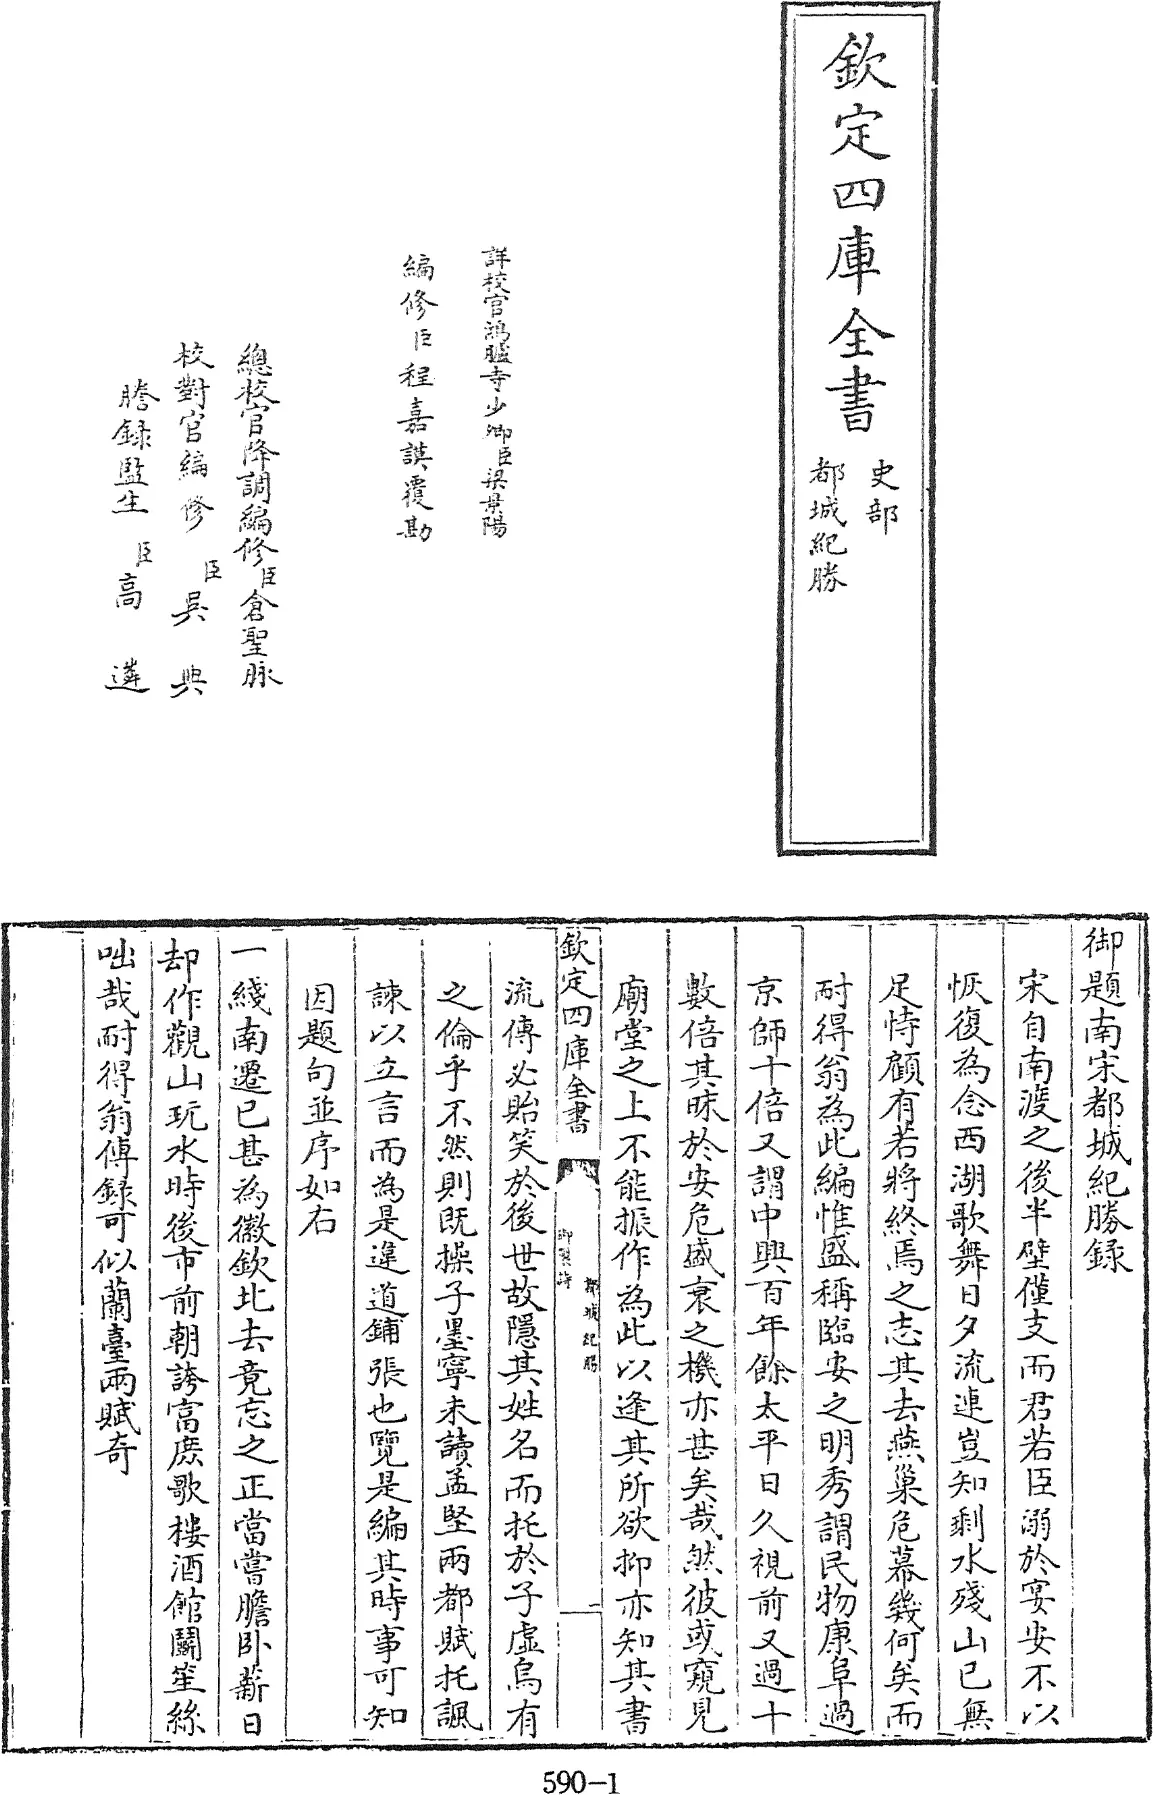 欽定四庫全書
史部
都城紀勝
詳校官鴻臚寺少卿臣梁景陽
編修臣程嘉謨覆勘
總校官降調編修臣倉聖脉
校對官編修臣吳典
謄錄監生臣高遴
御題南宋都城紀勝録
宋自南渡之後半壁僅支而君若臣溺於宴安不以
恢復為念西湖歌舞日夕流連豈知剩水殘山已無
足恃顧有若將終焉之志其去燕巢危幕幾何矣而
耐得翁為此編惟盛稱臨安之明秀謂民物康阜過
京師十倍又謂中興百年餘太平日久視前又過十
數倍其昧於安危盛衰之機亦甚矣哉然彼或窺見
廟堂之上不能振作為此以逢其所欲抑亦知其書
欽定四庫全書
都城紀勝
御製詩
一
流傳必貽笑於後世故隱其姓名而托於子虛烏有
之倫乎不然則既操子墨寧未讀孟堅兩都賦托諷
諫以立言而為是違道鋪張也覽是編其時事可知
因題句並序如右
一綫南遷已甚為徽欽北去竟忘之正當嘗膽卧薪日
却作觀山玩水時後市前朝誇富庶歌樓酒館鬭笙絲
咄哉耐得翁傳録可似蘭臺兩賦奇
590-1